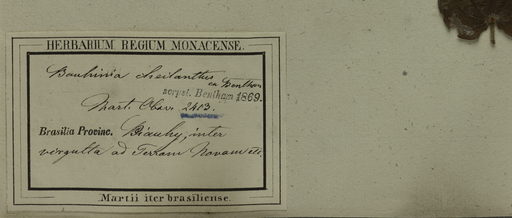 HERBARIUM REGIUM MONACENSE.
Bauhinia cheilantha ex Bentham
vorget. Bentham 1869.
Mart. Obsv. 2403.
Brasilia Provinc. Piauhy, inter
virgulta ad Terram Novam etc.
Martii iter brasiliense.